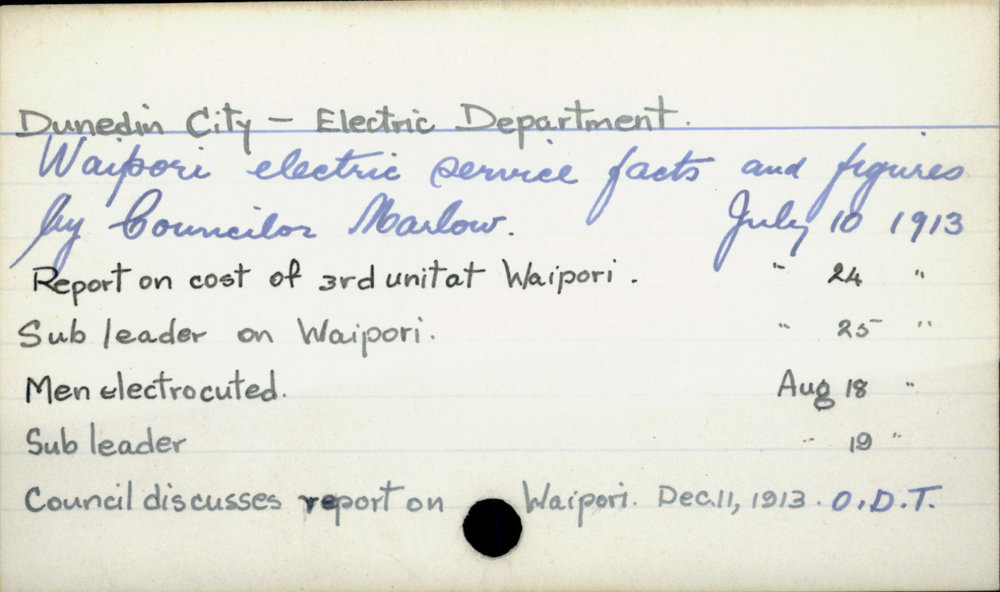 Dunedin City - Electric Department.
Waipori electric service facts and figures
by Councilor Marlow. July 10 1913
Report on cost of 3rd unit at Waipori. " 24 "
Sub leader on Waipori. " 25 "
Men electrocuted. Aug 18 "
Sub leader " 19 "
Council discusses report on Waipori. Dec. 11, 1913. O.D.T.